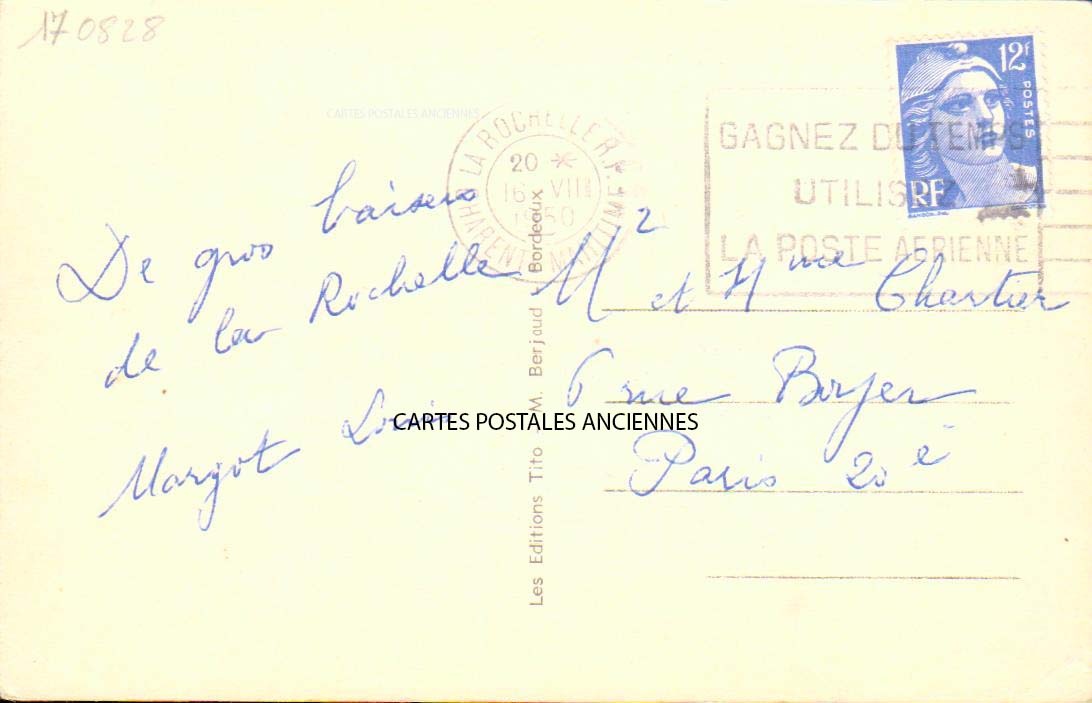 170828
CARTES POSTALES ANCIENNES
LA ROCHELLE R.P.
20 *
16 VIII
1950
CHARENTE MARITIME
GAGNEZ DU TEMPS
UTILISEZ
LA POSTE AERIENNE
12f
POSTES
RF
De gros baisers
de la Rochelle
Margot
CARTES POSTALES ANCIENNES
Les Editions Tito M. Berjaud Bordeaux
Mr et Mme Chartier
6 rue Boyer
Paris 20è